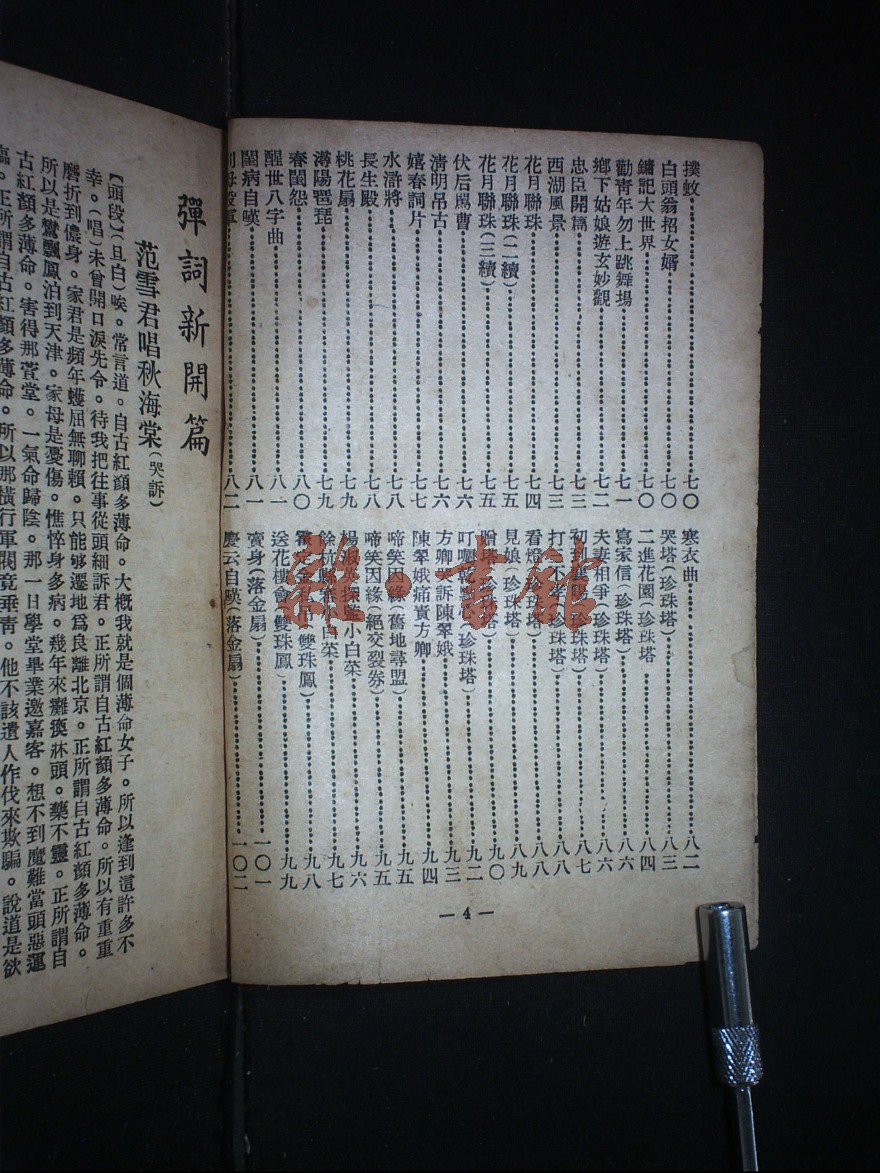 撲蚊 七〇
白頭翁招女婿 七〇
鏞記大世界 七〇
勸青年勿上跳舞場 七一
鄉下姑娘遊玄妙觀 七二
忠臣開篇 七三
西湖風景 七三
花月聯珠 七四
花月聯珠(二續) 七五
花月聯珠(三續) 七五
伏后罵曹 七六
清明吊古 七六
嬉春詞片 七七
水滸將 七八
長生殿 七八
桃花扇 七九
潯陽琶琵 七九
春閨怨 八〇
醒世八字曲 八一
閨病自嘆 八一
別母 八二
寒衣曲 八二
哭塔(珍珠塔) 八三
二進花園(珍珠塔) 八四
寫家信(珍珠塔) 八六
夫妻相爭(珍珠塔) 八六
初到襄陽(珍珠塔) 八七
打不孝(珍珠塔) 八八
看燈(珍珠塔) 八八
見娘(珍珠塔) 八九
贈塔(珍珠塔) 九〇
叮嚀點心(珍珠塔) 九二
方卿訴陳翠娥 九三
陳翠娥痛責方卿 九四
啼笑因緣(舊地尋盟) 九五
啼笑因緣(絕交裂券) 九五
楊淑英探監小白菜 九六
餘杭縣 小白菜 九七
霍定金私 雙珠鳳) 九八
送花樓會(雙珠鳳) 九九
賣身(落金扇) 一〇一
慶云自嘆(落金扇) 一〇二
— 4 —
彈詞新開篇
范雪君唱秋海棠(哭訴)
【頭段】(且白)唉。常言道。自古紅顏多薄命。大概我就是個薄命女子。所以逢到這許多不
幸。(唱)未曾開口淚先令。待我把往事從頭細訴君。正所謂自古紅顏多薄命。所以有重重
磨折到儂身。家君是頻年蠖屈無聊賴。只能够遷地爲良離北京。正所謂自古紅顏多薄命。
所以是鸞飄鳳泊到天津。家母是憂傷。憔悴身多病。幾年來癱瘓牀頭。藥不靈。正所謂自
古紅顏多薄命。害得那萱堂。一氣命歸陰。那一日學堂畢業邀嘉客。想不到魔難當頭惡運
臨。正所謂自古紅顏多薄命。所以那橫行軍閥竟垂青。他不該遣人作伐來欺騙。說道是欲
雜·書館